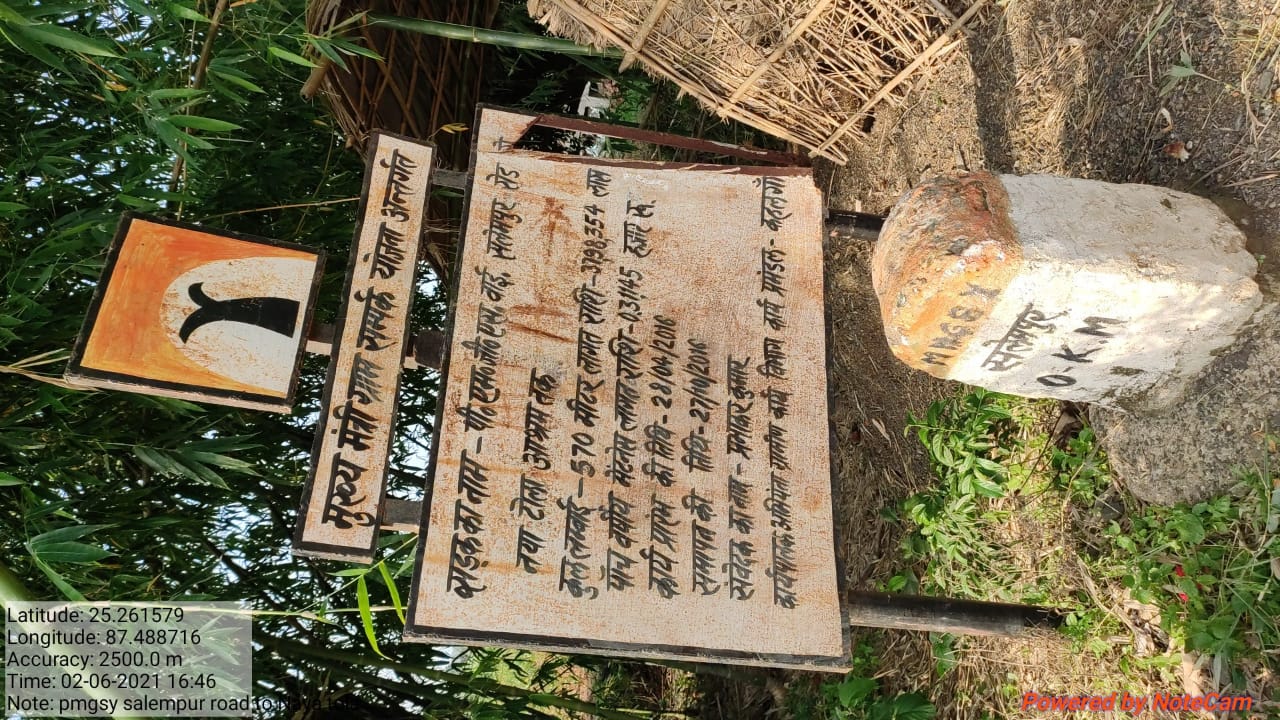 मुख्य मंत्री ग्राम सम्पर्क योजना अन्तर्गत
सड़क का नाम - पी.एम.जी.एस.वाई. सलेमपुर रोड से
नया टोला आश्रम तक
कुल लम्बाई - 570 मीटर लागत राशि - 31,98,354 लाख
पाँच वर्षीय मेंटनेंस लागत राशि - 03,145 हजार रू.
कार्य प्रारंभ की तिथि - 28/04/2016
समापन की तिथि - 27/10/2016
संवेदक का नाम - प्रभाकर कुमार
कार्यपालक अभियंता ग्रामीण कार्य विभाग कार्य प्रमंडल -
MMGSY
सलेमपुर
0-KM
Latitude: 25.261579
Longitude: 87.488716
Accuracy: 2500.0 m
Time: 02-06-2021 16:46
Note: pmgsy salempur road to Naya tola
Powered by NoteCam